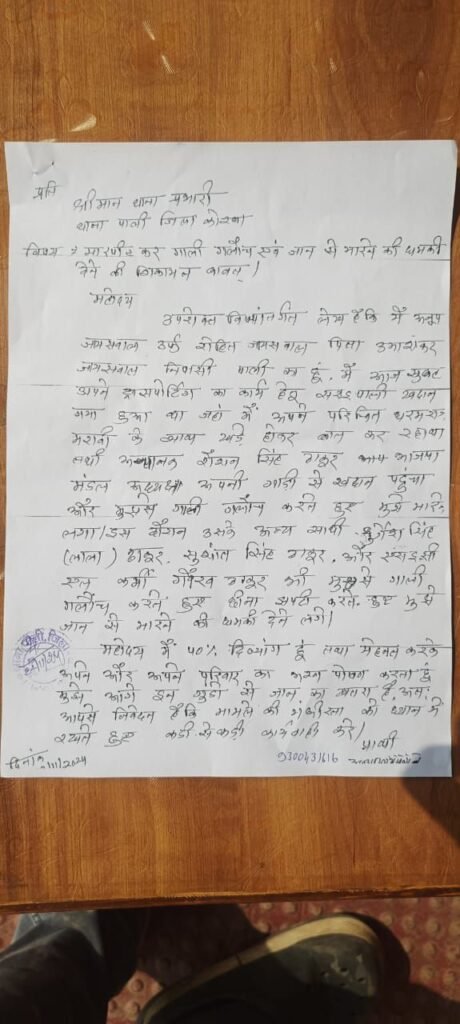 प्रति
श्रीमान थाना प्रभारी
थाना पाली जिला कोरबा
विषय :- मारपीट कर गाली गलौच एवं जान से मारने की धमकी
देने की शिकायत बाबत् ।
महोदय
उपरोक्त विषयांतर्गत लेख है कि मैं अनुप
जायसवाल उर्फ रोहित जायसवाल पिता उमाशंकर
जायसवाल निवासी पाली का हूं. मैं आज सुबह
अपने ट्रांसपोर्टिंग का कार्य हेतु पाली खदान
गया हुआ था जहां मैं अपने परिचित
के साथ खड़े होकर बात कर रहा था
तभी अचानक रौशन सिंह ठाकुर भाजपा
मंडल अध्यक्ष अपनी गाड़ी से खदान पहुंचा
और मुझसे गाली गलौच करते हुए मुझे मारने
लगा। इस दौरान उसके अन्य साथी सिंह
(लाला) ठाकुर, सिंह ठाकुर, और
कर्मी ठाकुर भी मुझसे गाली
गलौच करते हुए छीना झपटी करते हुए मुझे
जान से मारने की धमकी देने लगे।
महोदय मैं 40% दिव्यांग हूं तथा मेहनत करके
अपने और अपने परिवार का भरण पोषण करता हूं
मुझे आगे इन गुंडो से जान का खतरा है, अतः
आपसे निवेदन है कि मामले की गंभीरता को ध्यान में
रखते हुए कडी से कडी कार्यवाही करे।
प्रार्थी
दिनांक /11/2024
9300431616